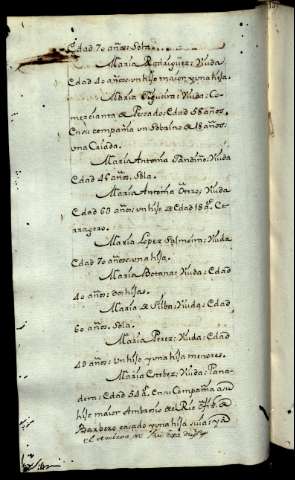 Edad 70 años: Sola.
Maria Rodriguez: Viuda
Edad 40 años: un hijo maior, y una hija.
Maria Figueira: Viuda: Co-
merzianta de Pescado: Edad 58 años.
En su compañia un Sobrino de 18 años.
una Criada.
Maria Antonia Pandiño: Viuda
Edad 46 años. Sola.
Maria Antonia Viuda
Edad 68 años: un hijo de Edad 18 a.s Ce-
rragero.
Maria Lopez Viuda
Edad 70 años: una hija.
Maria Botana: Viuda: Edad
40 años: dos hijas.
Maria de Alba: Viuda: Edad
60 años. Sola.
Maria Perez: Viuda: Edad
49 años: un hijo, y una hija menores.
Maria Estebez: Viuda: Pana-
dera: Edad 64 a.s En su Compañia a su
hijo maior Antonio del Rio
Barbero, casado, y una hija